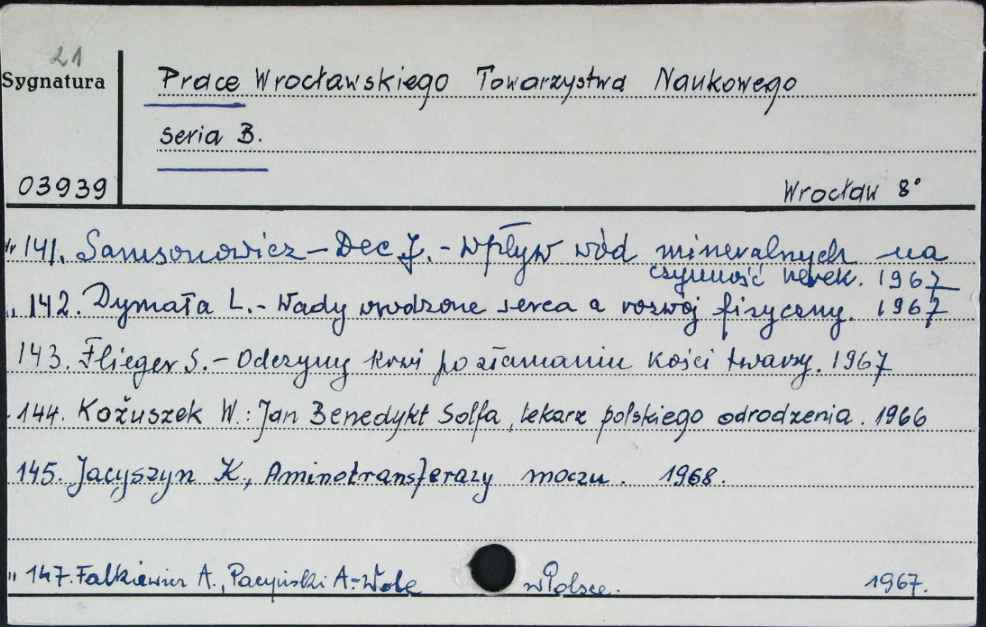 21
Sygnatura
Prace Wrocławskiego Towarzystwa Naukowego
seria B.
03939
Wrocław 8°
Nr 141. Samsonowicz-Dec J. - Wpływ wód mineralnych na
czynność nerek. 1967
„ 142. Dymała L. - Wady wrodzone serca a rozwój fizyczny. 1967
143. Flieger S. - Odczyny krwi po złamaniu kości twarzy. 1967
144. Kożuszek W.: Jan Benedykt Solfa, lekarz polskiego odrodzenia. 1966
145. Jacyszyn K., Aminotransferazy moczu. 1968.
„ 147. Falkiewicz A., Pacyński A-Wole w Polsce. 1967.